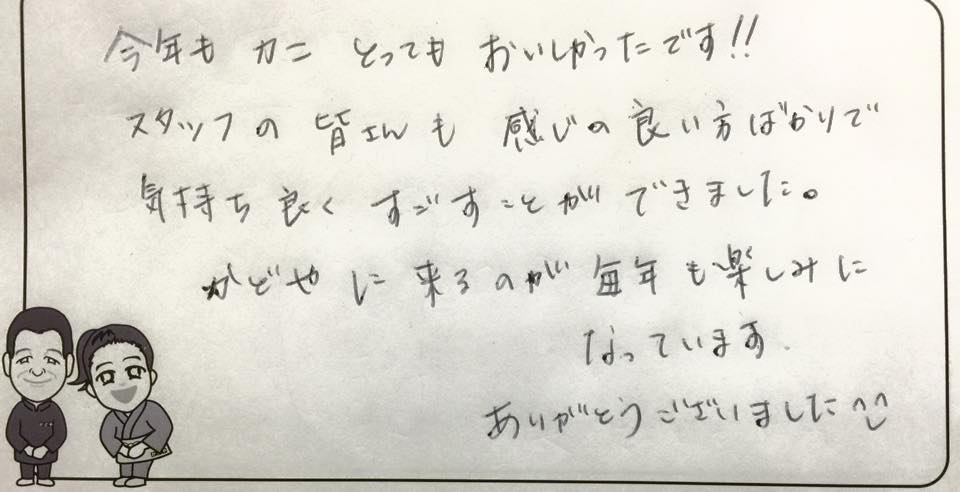 今年も カニ とっても おいしかったです!!
スタッフの 皆さんも 感じの良い方ばかりで
気持ち良く すごすことが できました。
かどやに来るのが 毎年も楽しみに
なっています.
ありがとうございました^^